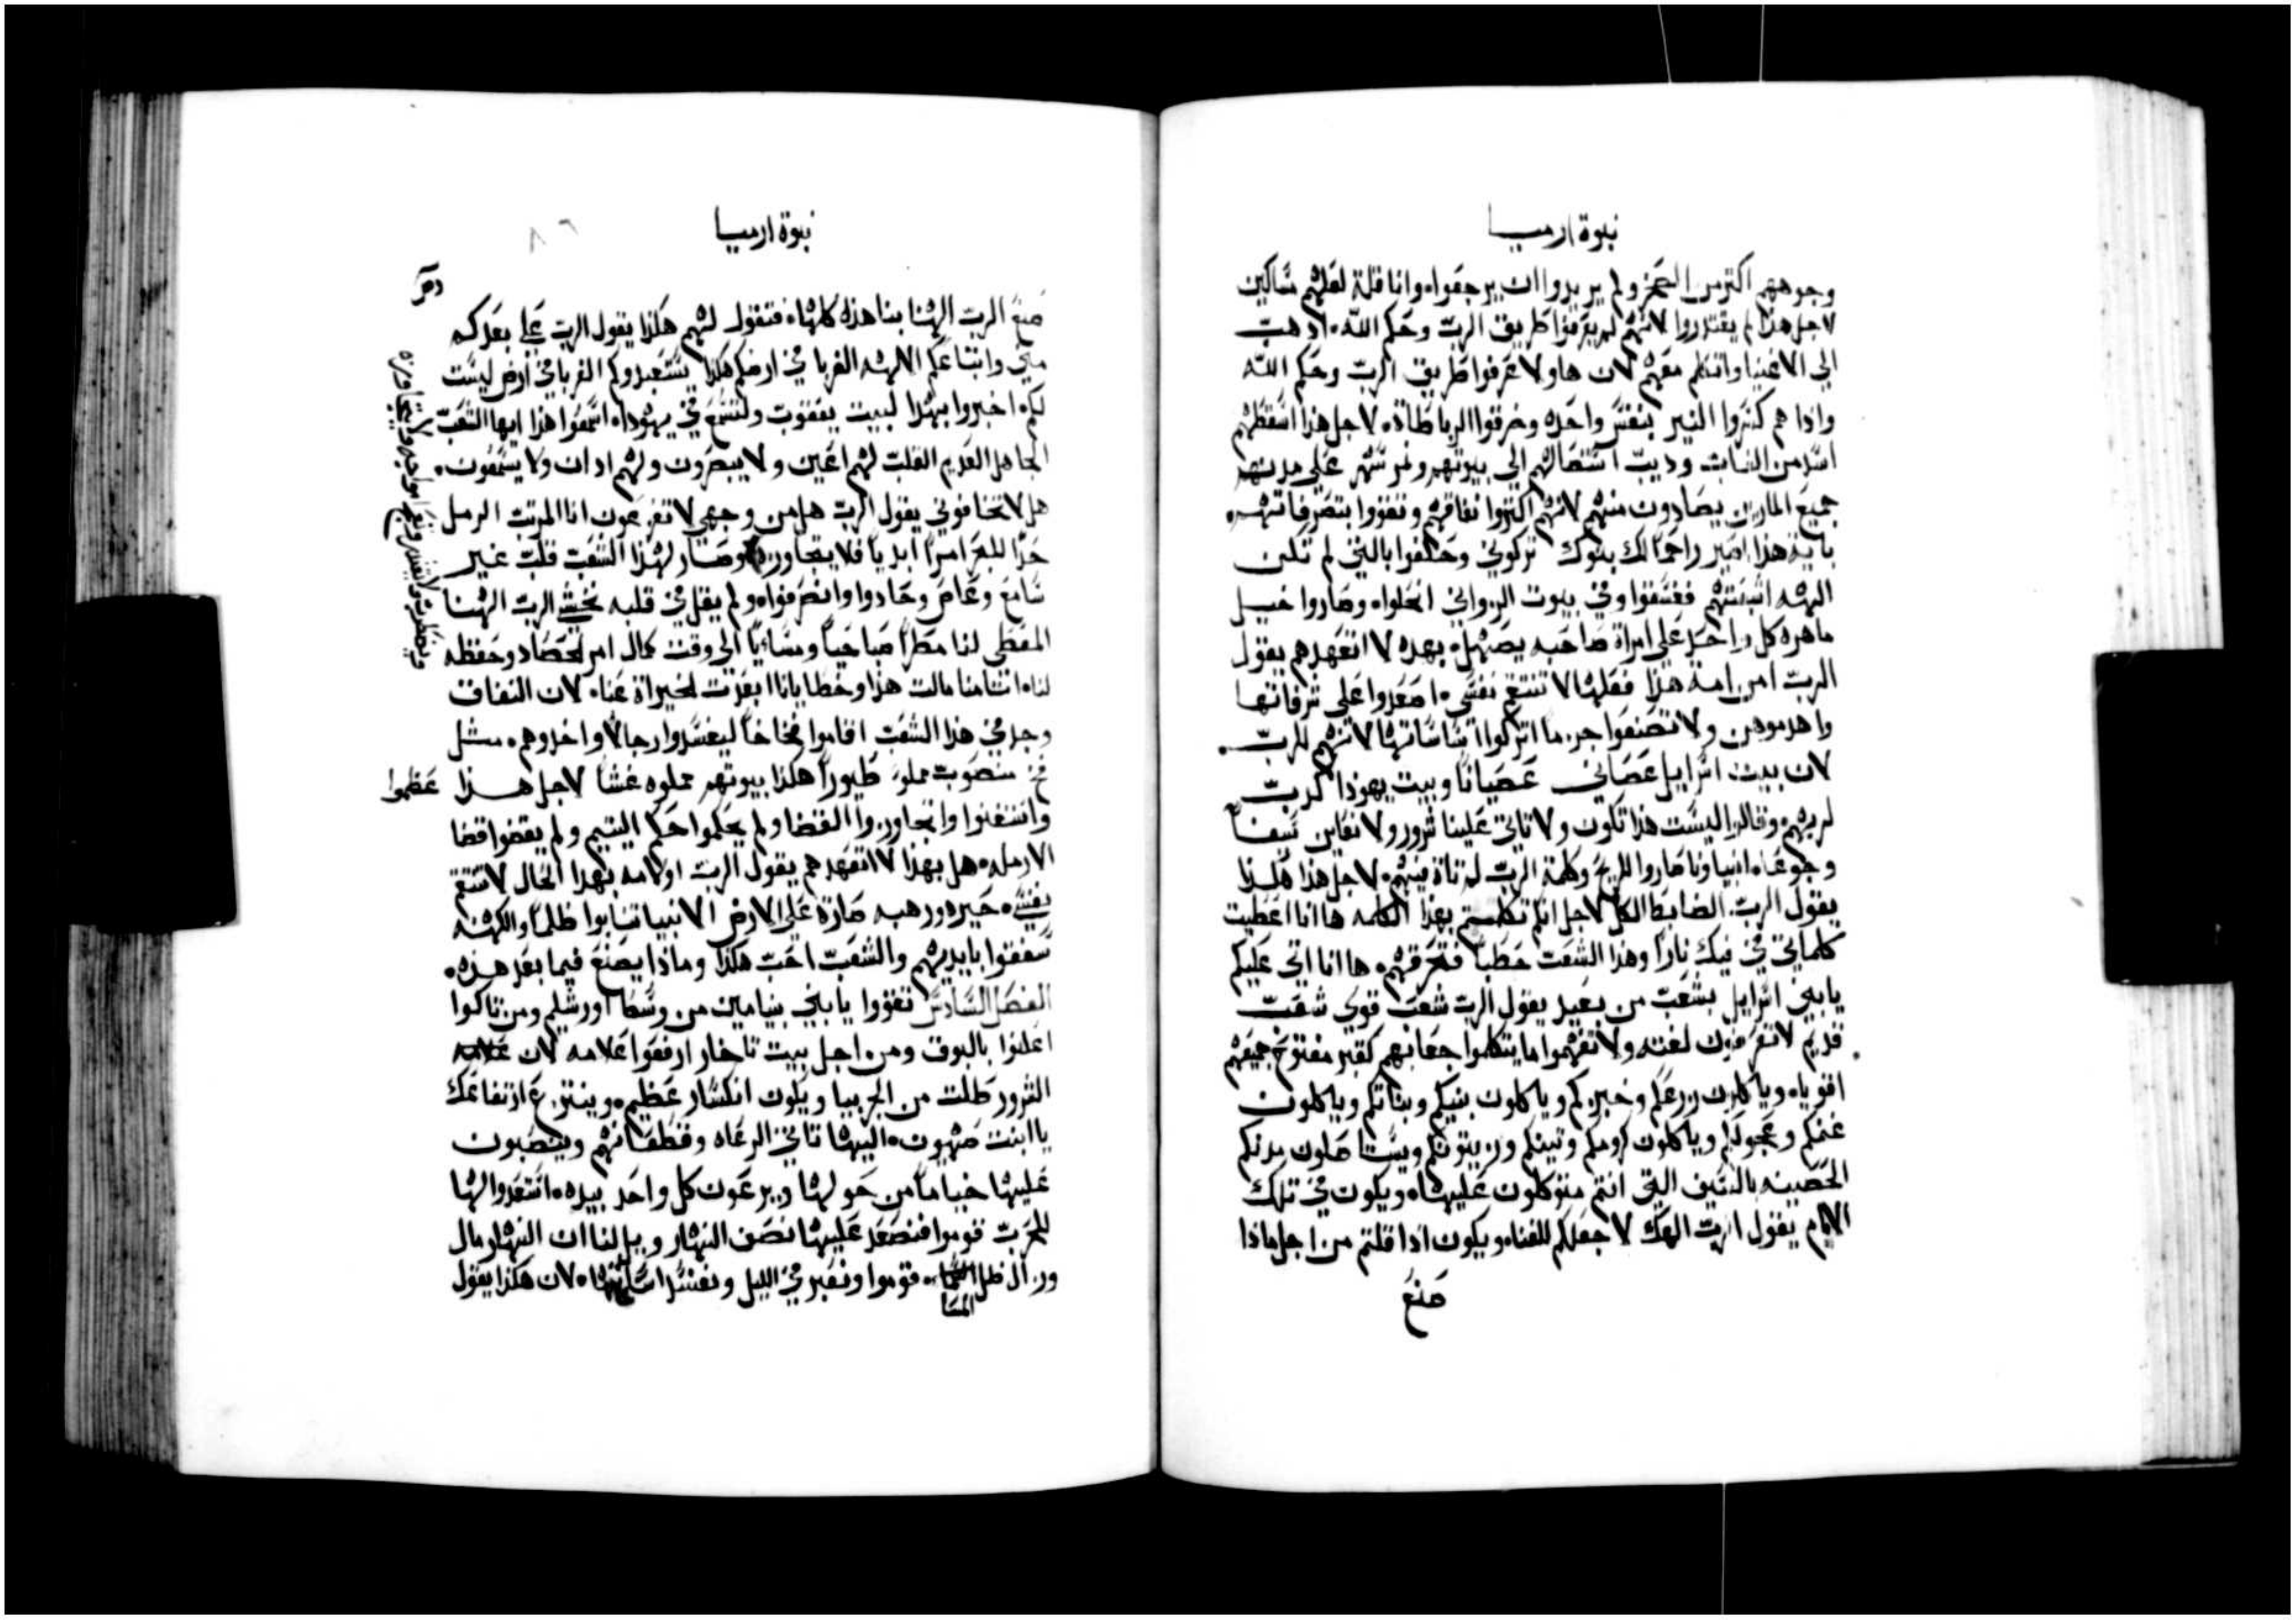 نبوة ارميا
وجوههم اكتر من الصخر ولم يريدوا ان يرجعوا، وانا قلت لعلهم مساكين
لاجل هذا لم يقتدروا لانهم لم يعرفوا طريق الرب وحكم الله، اذهب
الي الاغنيا واتكلم معهم لان هاولا عرفوا طريق الرب وحكم الله
واذا هم كسروا النير بنفس واحده وخرقوا الرباطات، لاجل هذا اسقطهم
اسد من الغاب وديب استاصالهم الي بيوتهم ونمر سهر علي مدنهم
جميع المارين يصادون منهم لانهم اكتروا نفاقهم وتقووا بتصرفاتهم
باية هذا اصير راحما لك بنوك تركوني وحلفوا بالتي لم تكن
الهه اشبعتهم ففسقوا وفي بيوت الزواني انحلوا، وصاروا خيل
ماهره كل واحد علي امراة صاحبه يصهل، بهده لا اتعهدهم يقول
الرب ام من امة هذا فعلها لا تنتقم نفسي، اصعدوا علي شرفاتها
واهدموهن ولا تصنعوا جزما اتركوا اساساتها لانهم للرب
لان بيت اسرايل عصاني عصيانا وبيت يهوذا
لربهم وقالوا ليست هذا تكون ولا تاتي علينا شرور ولا نعاين سيفا
وجوعا، انبياونا صاروا للريح وكلمة الرب لم تاة فيهم، لاجل هذا هكذا
يقول الرب الضابط الكل لاجل انكم تكلمتم بهذا الكلمه ها انا اعطيت
كلماتي في فيك نارا وهذا الشعب حطبا فتحرقهم، ها انا اتي عليكم
يابني اسرايل بشعب من بعيد يقول الرب شعب قوي شعب
قديم لا تعرفون لغته ولا تفهموا ما يتكلموا جعابهم كقبر مفتوح جميعهم
اقويا، وياكلون زرعكم وخبزكم وياكلون بنيكم وبناتكم وياكلون
غنمكم وعجولكم وياكلون كرومكم وتينكم وزيتونكم ويستاصلون مدنكم
الحصينه بالسيف التي انتم متوكلون عليها، ويكون في تلك
الايام يقول الرب الهك لا جعلكم للفنا، ويكون اذا قلتم من اجل ماذا
صنع
نبوة ارميا
٨٦
صنع الرب الهنا بنا هذه كلها، فتقول لهم هكذا يقول الرب علي بعدكم
مني واتباعكم الالهه الغربا في ارضكم هكذا يستعبدوكم الغربا في ارض ليست
لكم، اخبروا بهدا لبيت يعقوب ولتسمع في يهوذا، اسمعوا هذا ايها الشعب
الجاهل العديم القلب لهم اعين ولا يبصرون ولهم ادان ولا يسمعون.
هل لا تخافوني يقول الرب هل من وجهي لا تفزعون انا المرتب الرمل
حدا للبحر امرا ابديا فلا يتجاوزه وصار لهذا الشعب قلب غير
سامع وعاص وحادوا وانصرفوا، ولم يقل في قلبه نخشي الرب الهنا
المعطي لنا مطرا صباحيا ومسائيا الي وقت كمال امر لحصاد وحفظه
لنا، اتامنا مالت هذا وخطايانا ابعدت لخيراة عنا، لان النفاق
وجد في هذا الشعب اقاموا فخاخا ليفسدوا رجالا واخدوهم، مثل
فخ منصوب مملو طيورا هكذا بيوتهم مملوه غشا لاجل هذا عظموا
واستغنوا وتجاوزوا القضا ولم يحكموا حكم اليتيم ولم يقضوا قضا
الارمله، هل بهذا لا اتعهدهم يقول الرب او كامه بهدا الحال لا تنتقم
نفسي، حيره ورهبه صارة علي الارض الانبيا تنابوا ظلما والكهنه
سفقوا بايديهم والشعب احب هكذا وماذا يصنع فيما بعد هذه،
الفصل السادس تقووا يابني بنيامين من وسط اورشليم ومن تاكوا
اعلنوا بالبوق ومن اجل بيت تاخار ارفعوا علامه لان علامه
الشرور طلت من الجربيا ويكون انكسار عظيم، وينتزع ارتفاعك
يا ابنت صهيون، اليها تاتي الرعاه وقطعانهم وينصبون
عليها خياما من حولها ويرعون كل واحد بيده، استعدوا لها
للحرب قوموا فنصعد عليها نصف النهار ويل لنا ان النهار مال
وزال ظل المسا، قوموا ونعبر في الليل ونفسد اساساتها، لان هكذا يقول